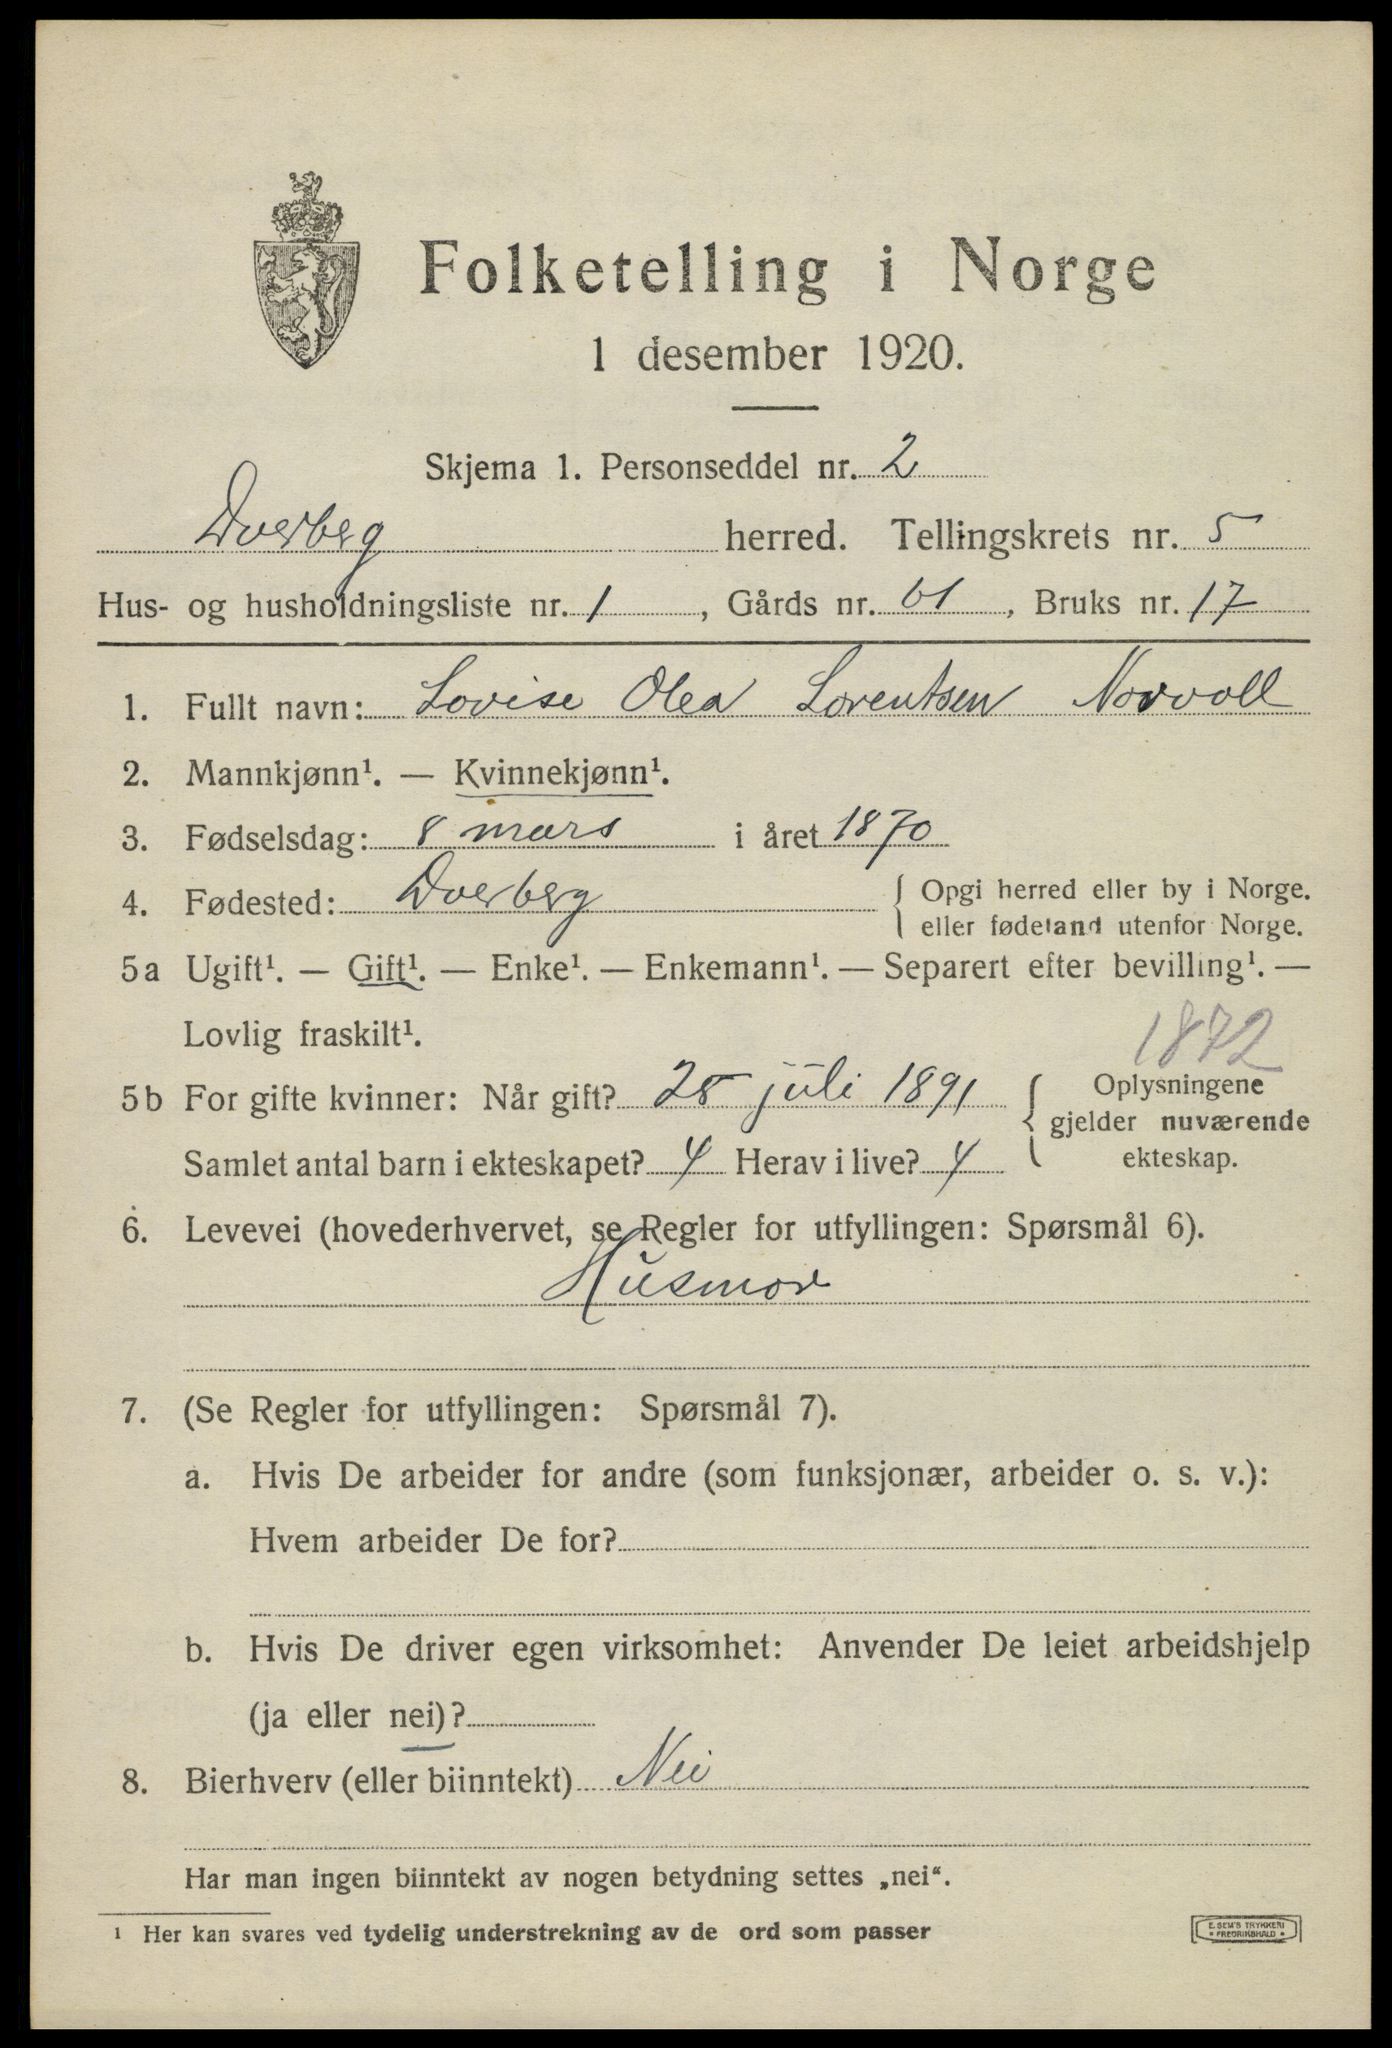 Folketelling i Norge
1 desember 1920.
Skjema 1. Personseddel nr. 2
Dverberg herred. Tellingskrets nr. 5
Hus- og husholdningsliste nr. 1, Gårds nr. 61, Bruks nr. 17
1. Fullt navn: Lovise Olea Lorentsen Norvoll
2. Mannkjønn¹. — Kvinnekjønn¹.
3. Fødselsdag: 8 mars i året 1870
4. Fødested: Dverberg { Opgi herred eller by i Norge.
eller fødeland utenfor Norge.
5a Ugift¹. — Gift¹. — Enke¹. — Enkemann¹. — Separert efter bevilling¹. —
Lovlig fraskilt¹.
1872
5b For gifte kvinner: Når gift? 28 juli 1891 { Oplysningene
gjelder nuværende
Samlet antal barn i ekteskapet? 4 Herav i live? 4 ekteskap.
6. Levevei (hovederhvervet, se Regler for utfyllingen: Spørsmål 6).
Husmor
7. (Se Regler for utfyllingen: Spørsmål 7).
a. Hvis De arbeider for andre (som funksjonær, arbeider o. s. v.):
Hvem arbeider De for?
b. Hvis De driver egen virksomhet: Anvender De leiet arbeidshjelp
(ja eller nei)?
8. Bierhverv (eller biinntekt) Nei
Har man ingen biinntekt av nogen betydning settes „nei“.
¹ Her kan svares ved tydelig understrekning av de ord som passer
E. SEM'S TRYKKERI
FREDRIKSHALD